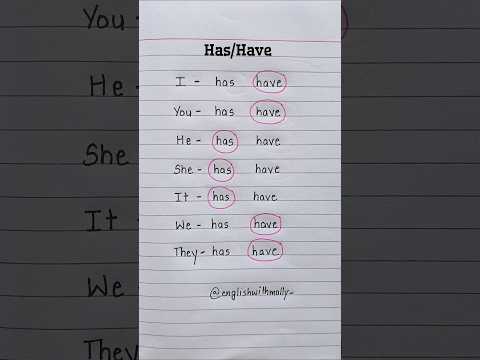 Has/Have
I - has have
You - has have
He - has have
She - has have
It - has have
We - has have
They - has have
@englishwithmolly_
You -
He -
She
It -
We
They